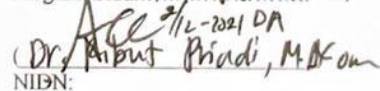 Acc 2/12-2021 DA
(Dr. Ribut Priadi, M.I.Kom
NIDN: